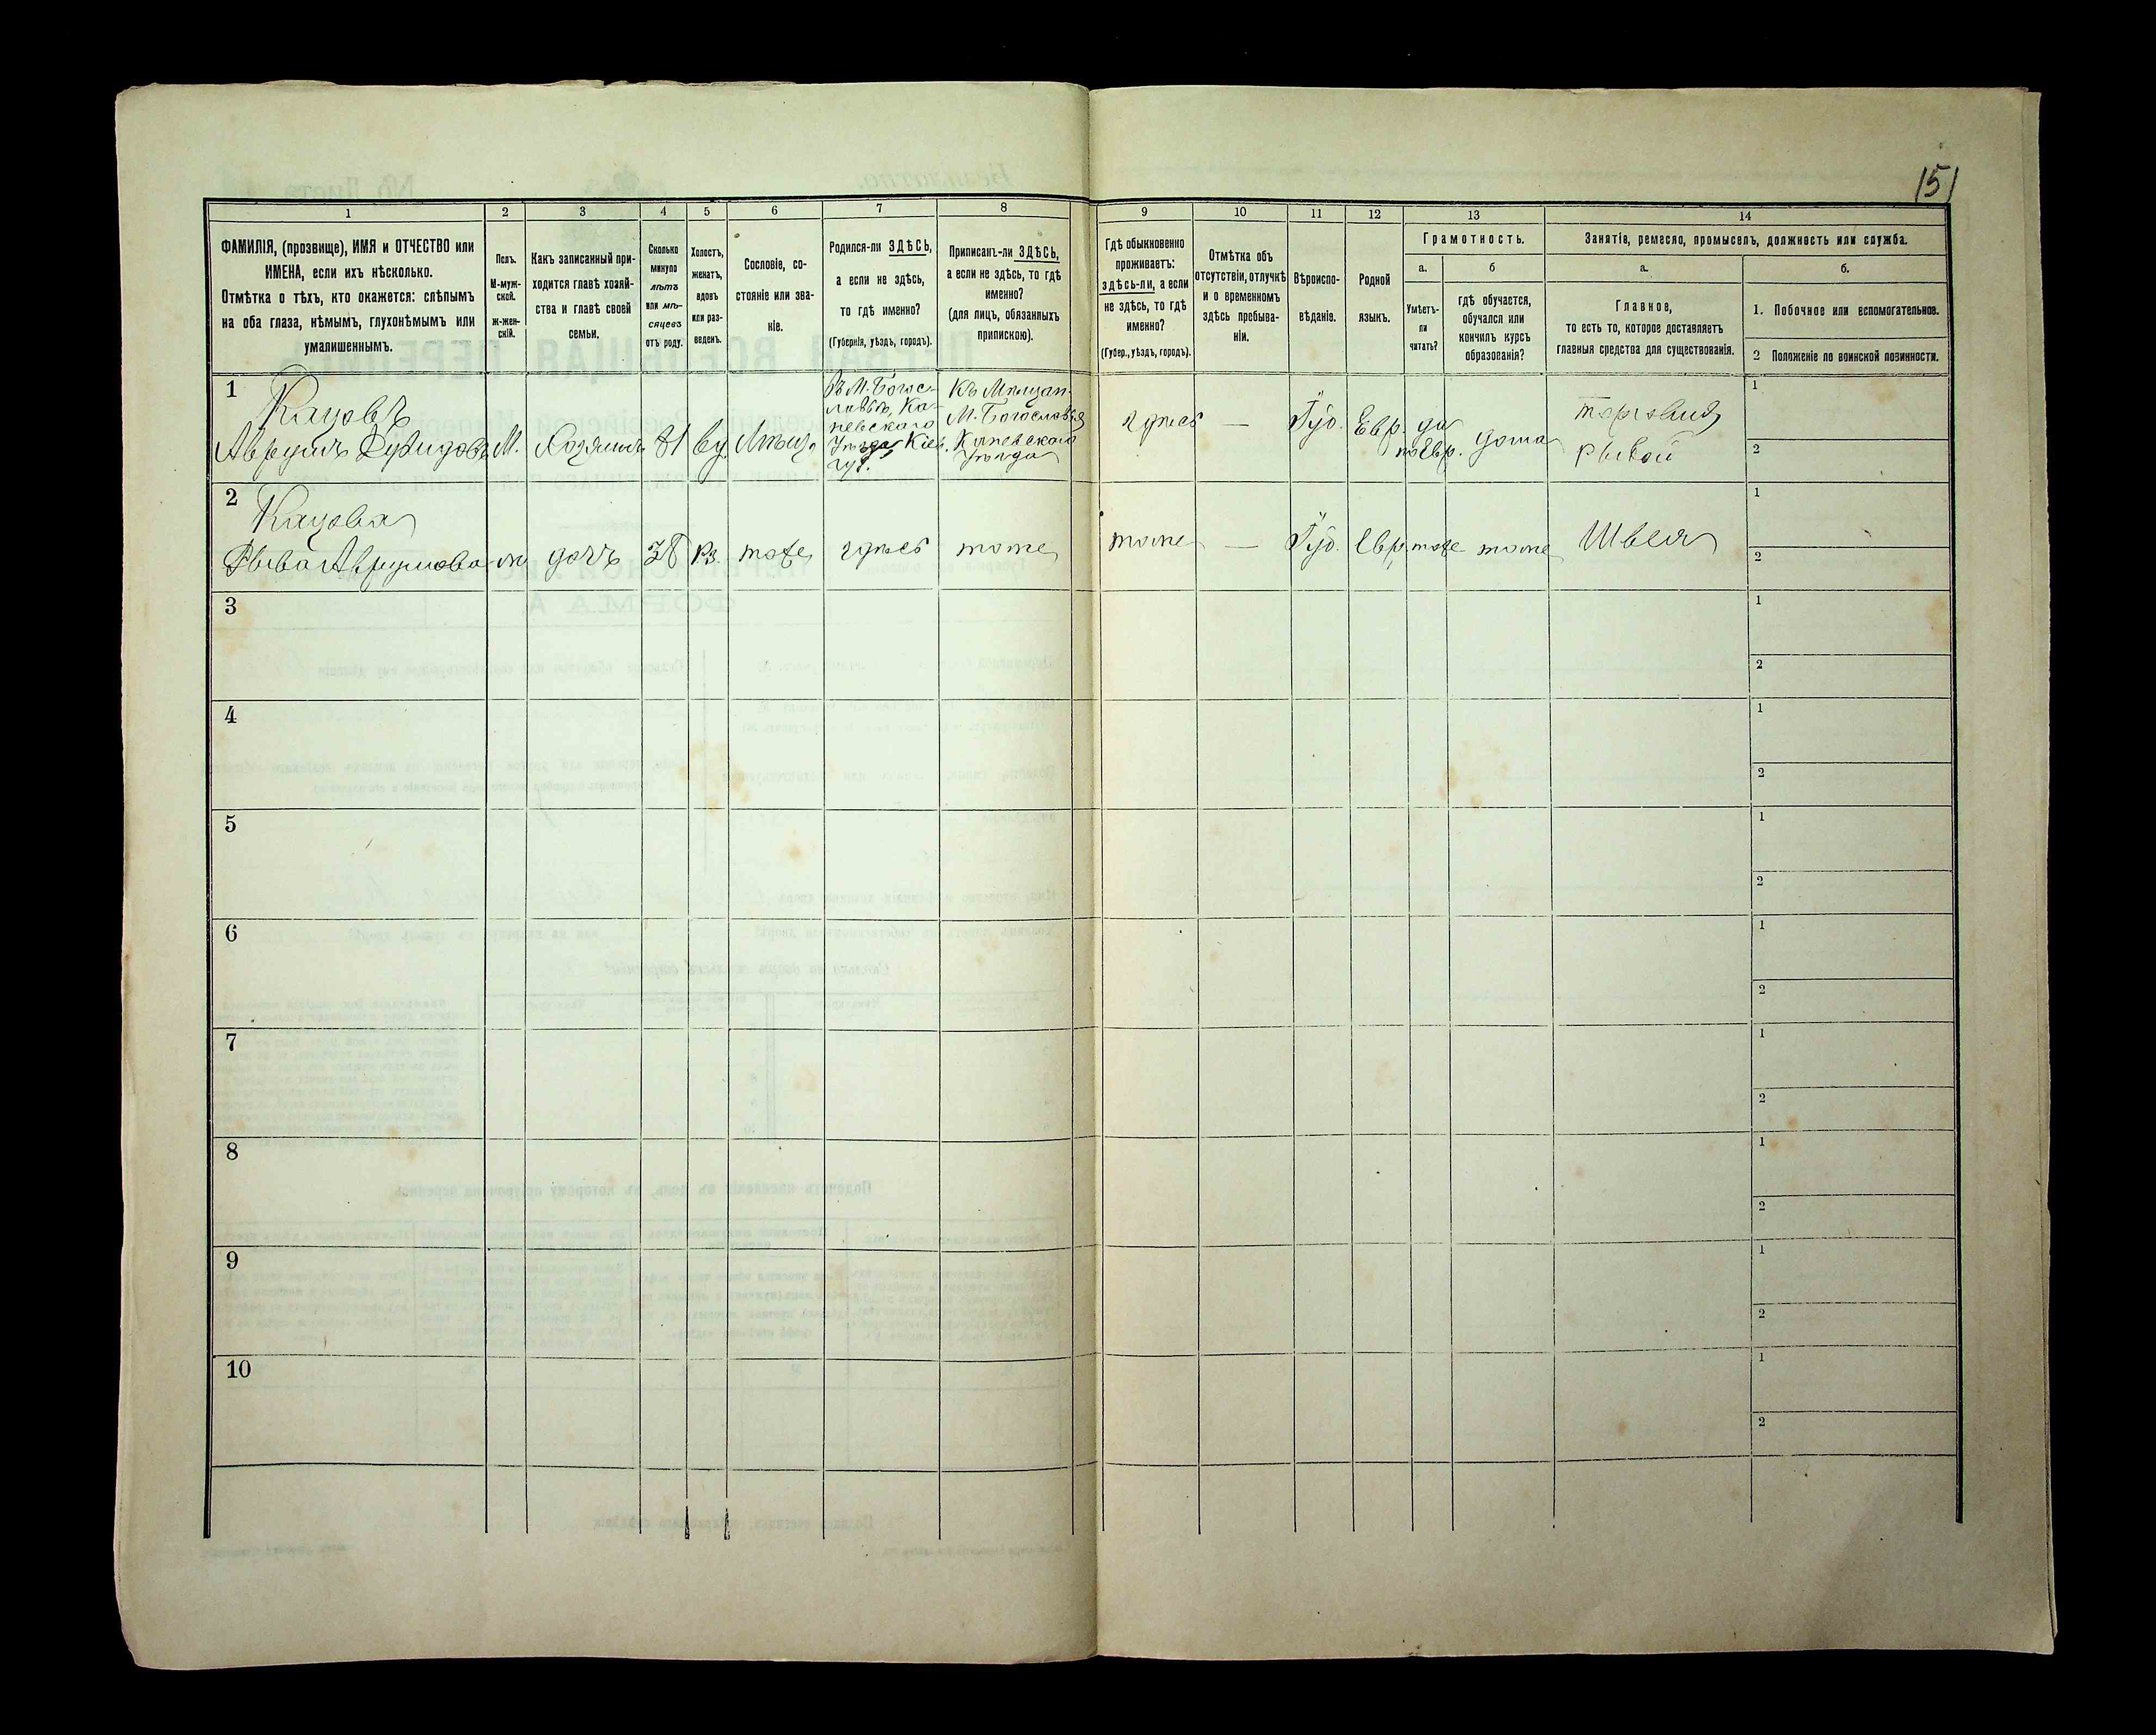 151
1
2
3
4
5
6
7
8
9
10
11
12
13
14
ФАМИЛІЯ, (прозвище), ИМЯ и ОТЧЕСТВО или
ИМЕНА, если ихъ нѣсколько.
Отмѣтка о тѣхъ, кто окажется: слѣпымъ
на оба глаза, нѣмымъ, глухонѣмымъ или
умалишеннымъ.
Полъ.
М-муж-
ской.
Ж-жен-
скій.
Какъ записанный при-
ходится главѣ хозяй-
ства и главѣ своей
семьи.
Сколько
минуло
лѣтъ
или мѣ-
сяцевъ
отъ роду.
Холостъ,
женатъ,
вдовъ
или раз-
веденъ.
Сословіе, со-
стояніе или зва-
ніе.
Родился-ли ЗДѢСЬ,
а если не здѣсь,
то гдѣ именно?
(Губернія, уѣздъ, городъ).
Приписанъ-ли ЗДѢСЬ,
а если не здѣсь, то гдѣ
именно?
(для лицъ, обязанныхъ
припискою).
Гдѣ обыкновенно
проживаетъ:
здѣсь-ли, а если
не здѣсь, то гдѣ
именно?
(Губер., уѣздъ, городъ).
Отмѣтка объ
отсутствіи, отлучкѣ
и о временномъ
здѣсь пребыва-
ніи.
Вѣроиспо-
вѣданіе.
Родной
языкъ.
Грамотность.
а.
Умѣетъ-
ли
читать?
б
гдѣ обучается,
обучался или
кончилъ курсъ
образованія?
Занятіе, ремесло, промыселъ, должность или служба.
а.
Главное,
то есть то, которое доставляетъ
главныя средства для существованія.
б.
1. Побочное или вспомогательное.
2 Положеніе по воинской повинности.
1
Кацовъ
Аврумъ
М.
Хозяинъ
81
вд.
Въ М. Богос-
лавѣ, Ка-
невскаго
Уѣзда, Кіев.
губ.
Къ Мѣщан.
М. Богослав
Каневскаго
Уѣзда
здѣсь
—
Іуд.
Евр.
да
по Евр.
дома
торговля
рыбой
1
2
2
Кацова
Аврумова
ж
дочь
тоже
здѣсь
тоже
тоже
—
Іуд.
Евр.
тоже
тоже
Швея
1
2
3
1
2
4
1
2
5
1
2
6
1
2
7
1
2
8
1
2
9
1
2
10
1
2